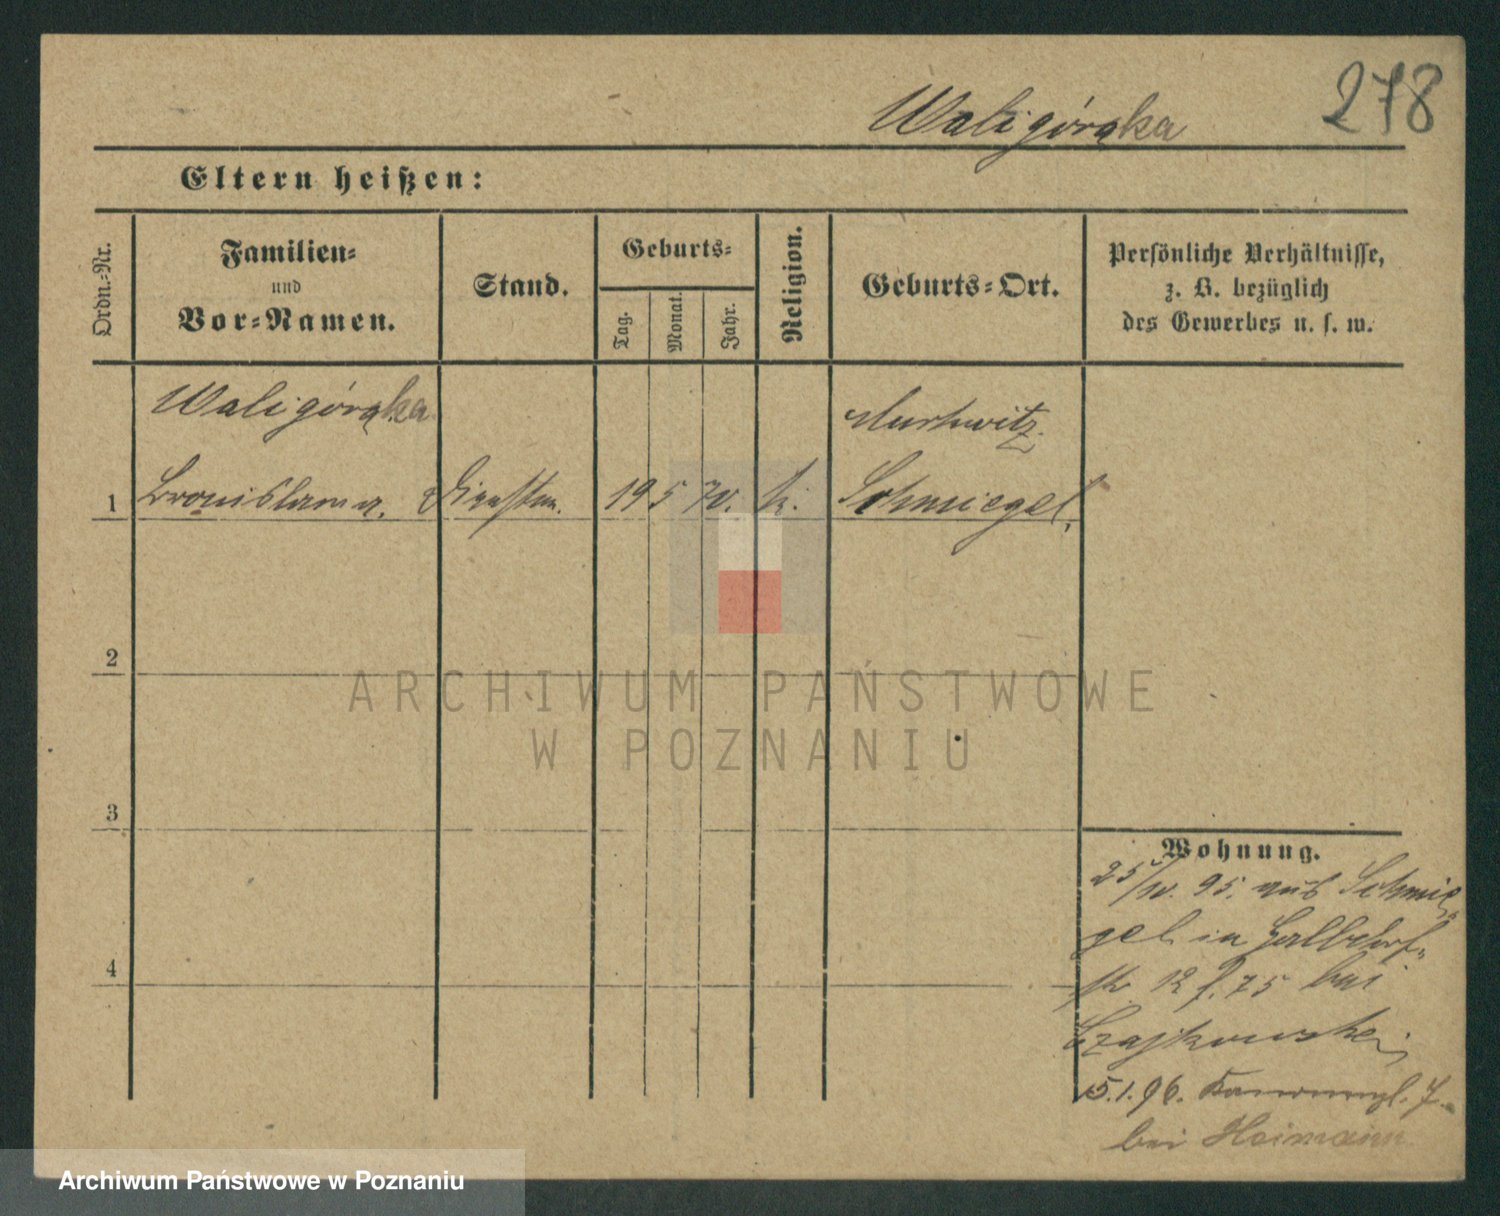 278
Waligórska
Eltern heißen:
Ordn.-Nr.
Familien-
und
Vor-Namen.
Stand.
Geburts-
Tag.
Monat.
Jahr.
Religion.
Geburts-Ort.
Persönliche Verhältnisse,
z. B. bezüglich
des Gewerbes u. s. w.
Waligórska
Murkwitz
1 Bronislawa. Dienstm. 19 5 70. k. Schmiegel,
2
3
4
Wohnung.
25/10. 95. aus Schmie-
gel in Halbdorf-
str. 12 75 bei
Czajkowski
5.1.96. 7.
bei Heimann
ARCHIWUM PAŃSTWOWE
W POZNANIU
Archiwum Państwowe w Poznaniu